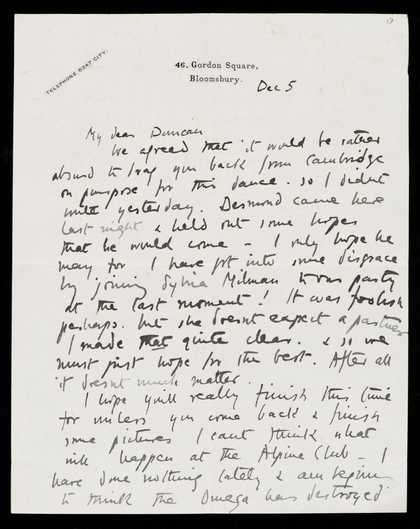 TELEPHONE 6587 CITY.
46, Gordon Square,
Bloomsbury.
Dec 5
My dear Duncan
We agreed that it would be rather
absurd to drag you back from Cambridge
on purpose for this dance. so I didnt
write yesterday. Desmond came here
last night & held out some hopes
that he would come – I only hope he
may for I have got into some disgrace
by joining Sylvia Milman to our party
at the last moment! It was foolish
perhaps. but she doesnt expect a partner
I made that quite clear. & so we
must just hope for the best. After all
it doesnt much matter.
I hope youll really finish this time
for unless you come back & finish
some pictures I cant think what
will happen at the Alpine Club – I
have done nothing lately & am beginning
to think the Omega has destroyed